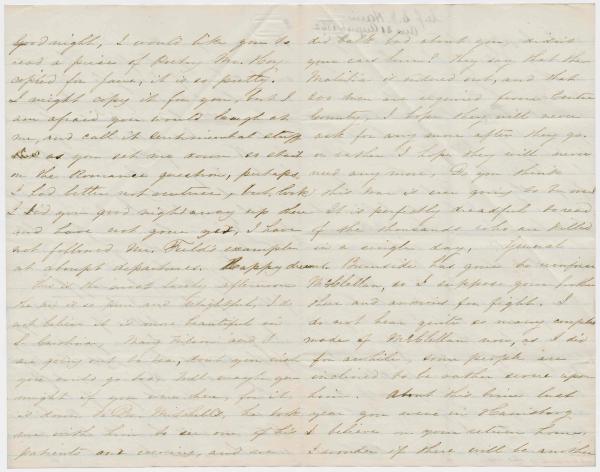 Good night, I would like you to
read a piece of Poetry Mr. Hoy
copied for Janie, it is so pretty.
I might copy it for you, but I
am afraid you would laugh at
me, and call it sentimental stuff
as you set me down so
on the Romance question, perhaps,
I had better not sentence, but look
I bid you good night away up there
and have not gone yet, I have
not followed Mr. Field's example
at abrupt departures. Happy dreams.
This is the most lovely afternoon
the air is so pure and delightful, I do
not believe it is more beautiful in
S. Carolina, Nany Wilson and I
are going out to tea, don't you wish
you could go too, well maybe you
might if you were here, for it
is down to Dr. Mitchell's, he took
me with him to see one of his
patients one evening, and we
did talk bad about you, didn't
your ears burn? They say that the
Malitia is ordered out, and that
200 men are required from Centre
County, I hope they will never
ask for any more after they go.
or rather I hope they will never
need any more, Do you think
this war is ever going to be over
It is perfectly dreadful to read
of the thousands who are killed
in a single day, General
Burnside has gone to reinforce
McClellan, so I suppose your brother
there and anxious for fight. I
do not hear quite so many complaints
made of McClellan now, as I did
for awhile, some people are
inclined to be rather severe upon
him. About this time last
year you were in Harrisburg
I believe on your return home,
I wonder if there will be another